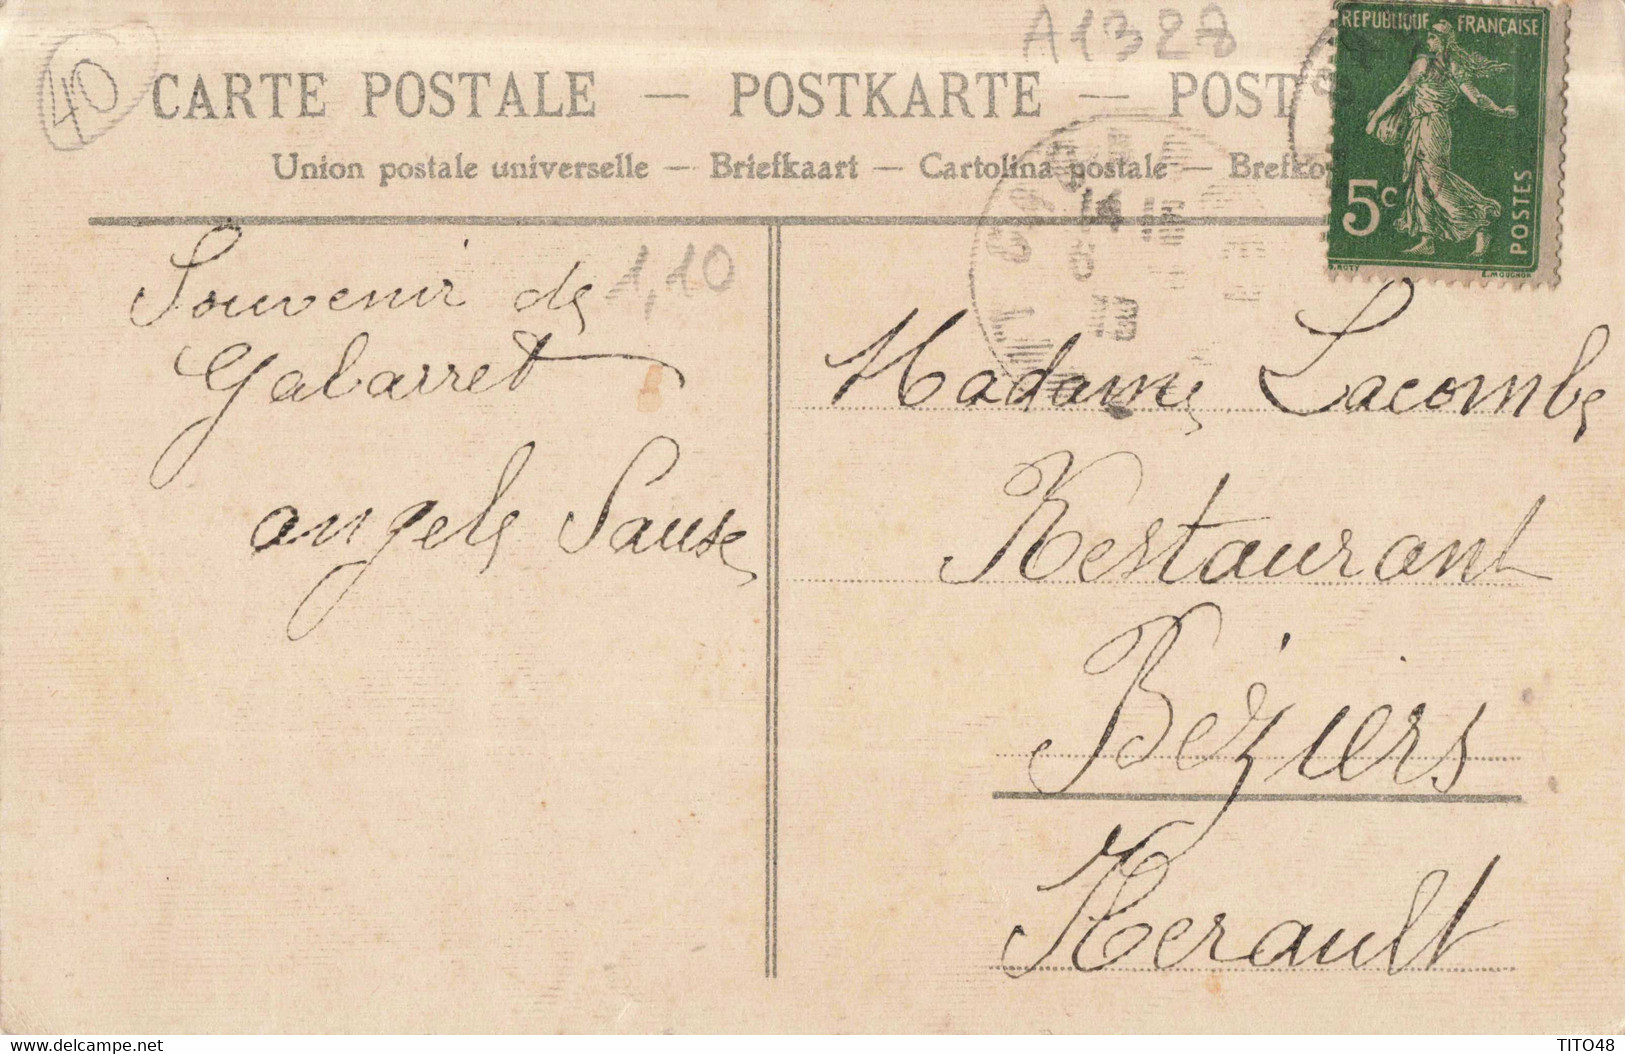 A1328
40
CARTE POSTALE — POSTKARTE — POST
Union postale universelle — Briefkaart — Cartolina postale — Brefko
REPUBLIQUE FRANÇAISE
5c
POSTES
O. ROTY E. MOUCHON
1,10
Souvenir de
Gabarret
angele Sause
Madame Lacombe
Restaurant
Béziers
Herault
delcampe.net
TITO48